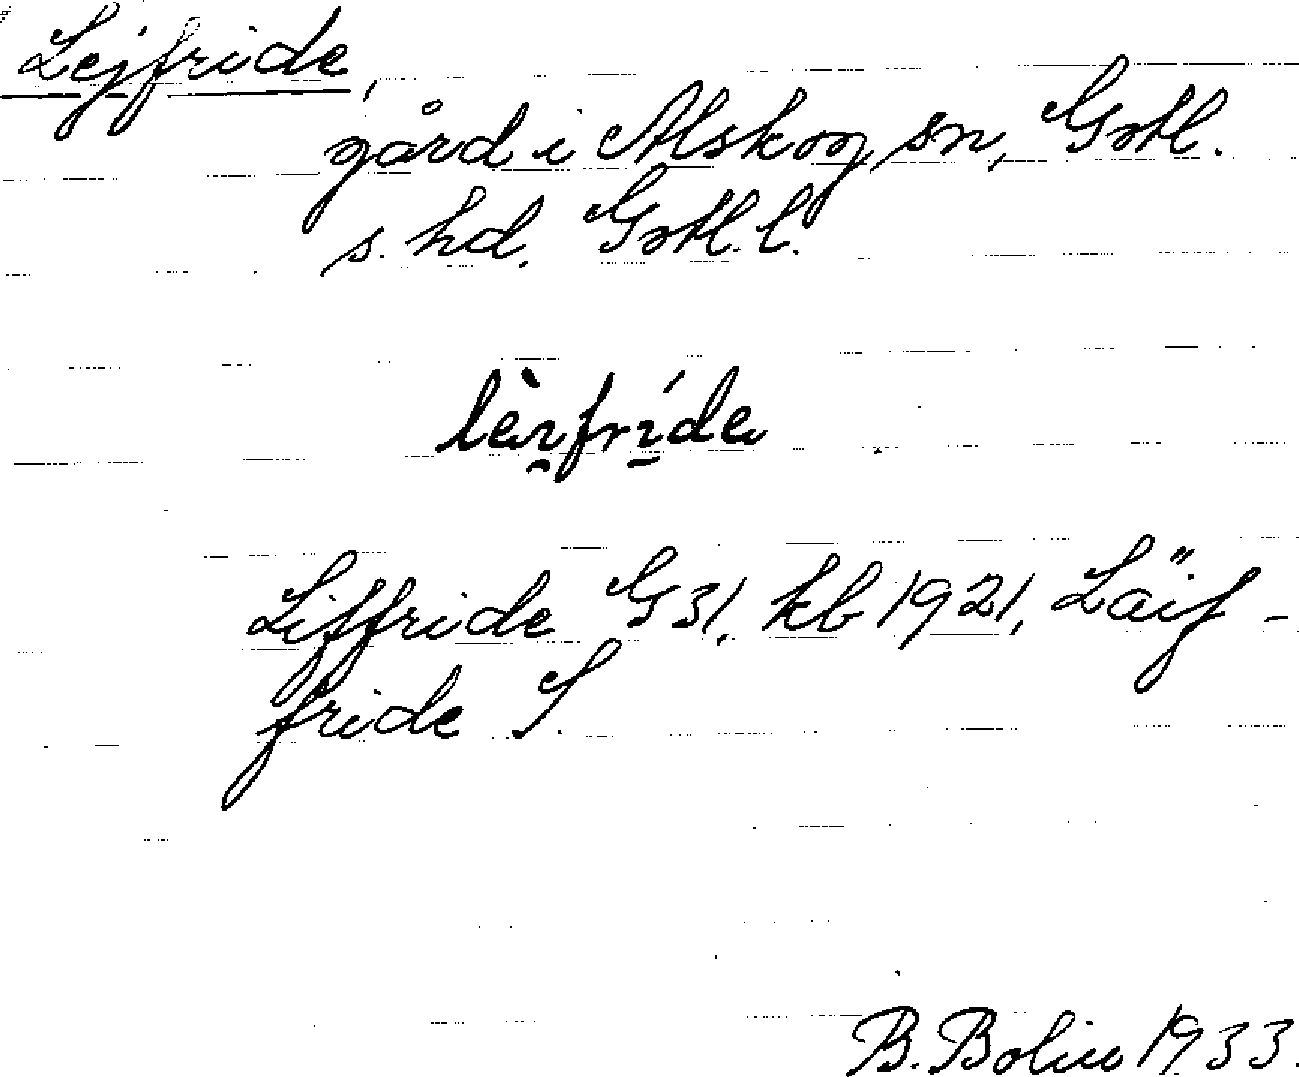 Lejfride,
gård i Alskog sn, Gotl.
s. hd. Gotl. l.
lèi̯frí̱de
Liffride G 31, kb 1921, Läif-
fride S.
B. Bolin 1933.